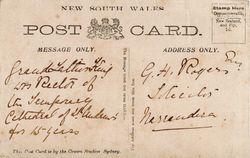 NEW SOUTH WALES
POST CARD.
Stamp Here
Commonwealth,
New Zealand,
and Fiji,
1d.
MESSAGE ONLY.
Grandfather King
was Rector of
the Temporary
Cathedral of St Andrews
for 15 years
ADDRESS ONLY.
G. H. Rogers Esq
Narrandera
This Post Card is by the Crown Studios Sydney.